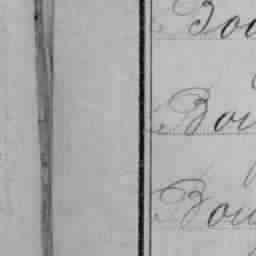 Boo
Bou
Bou